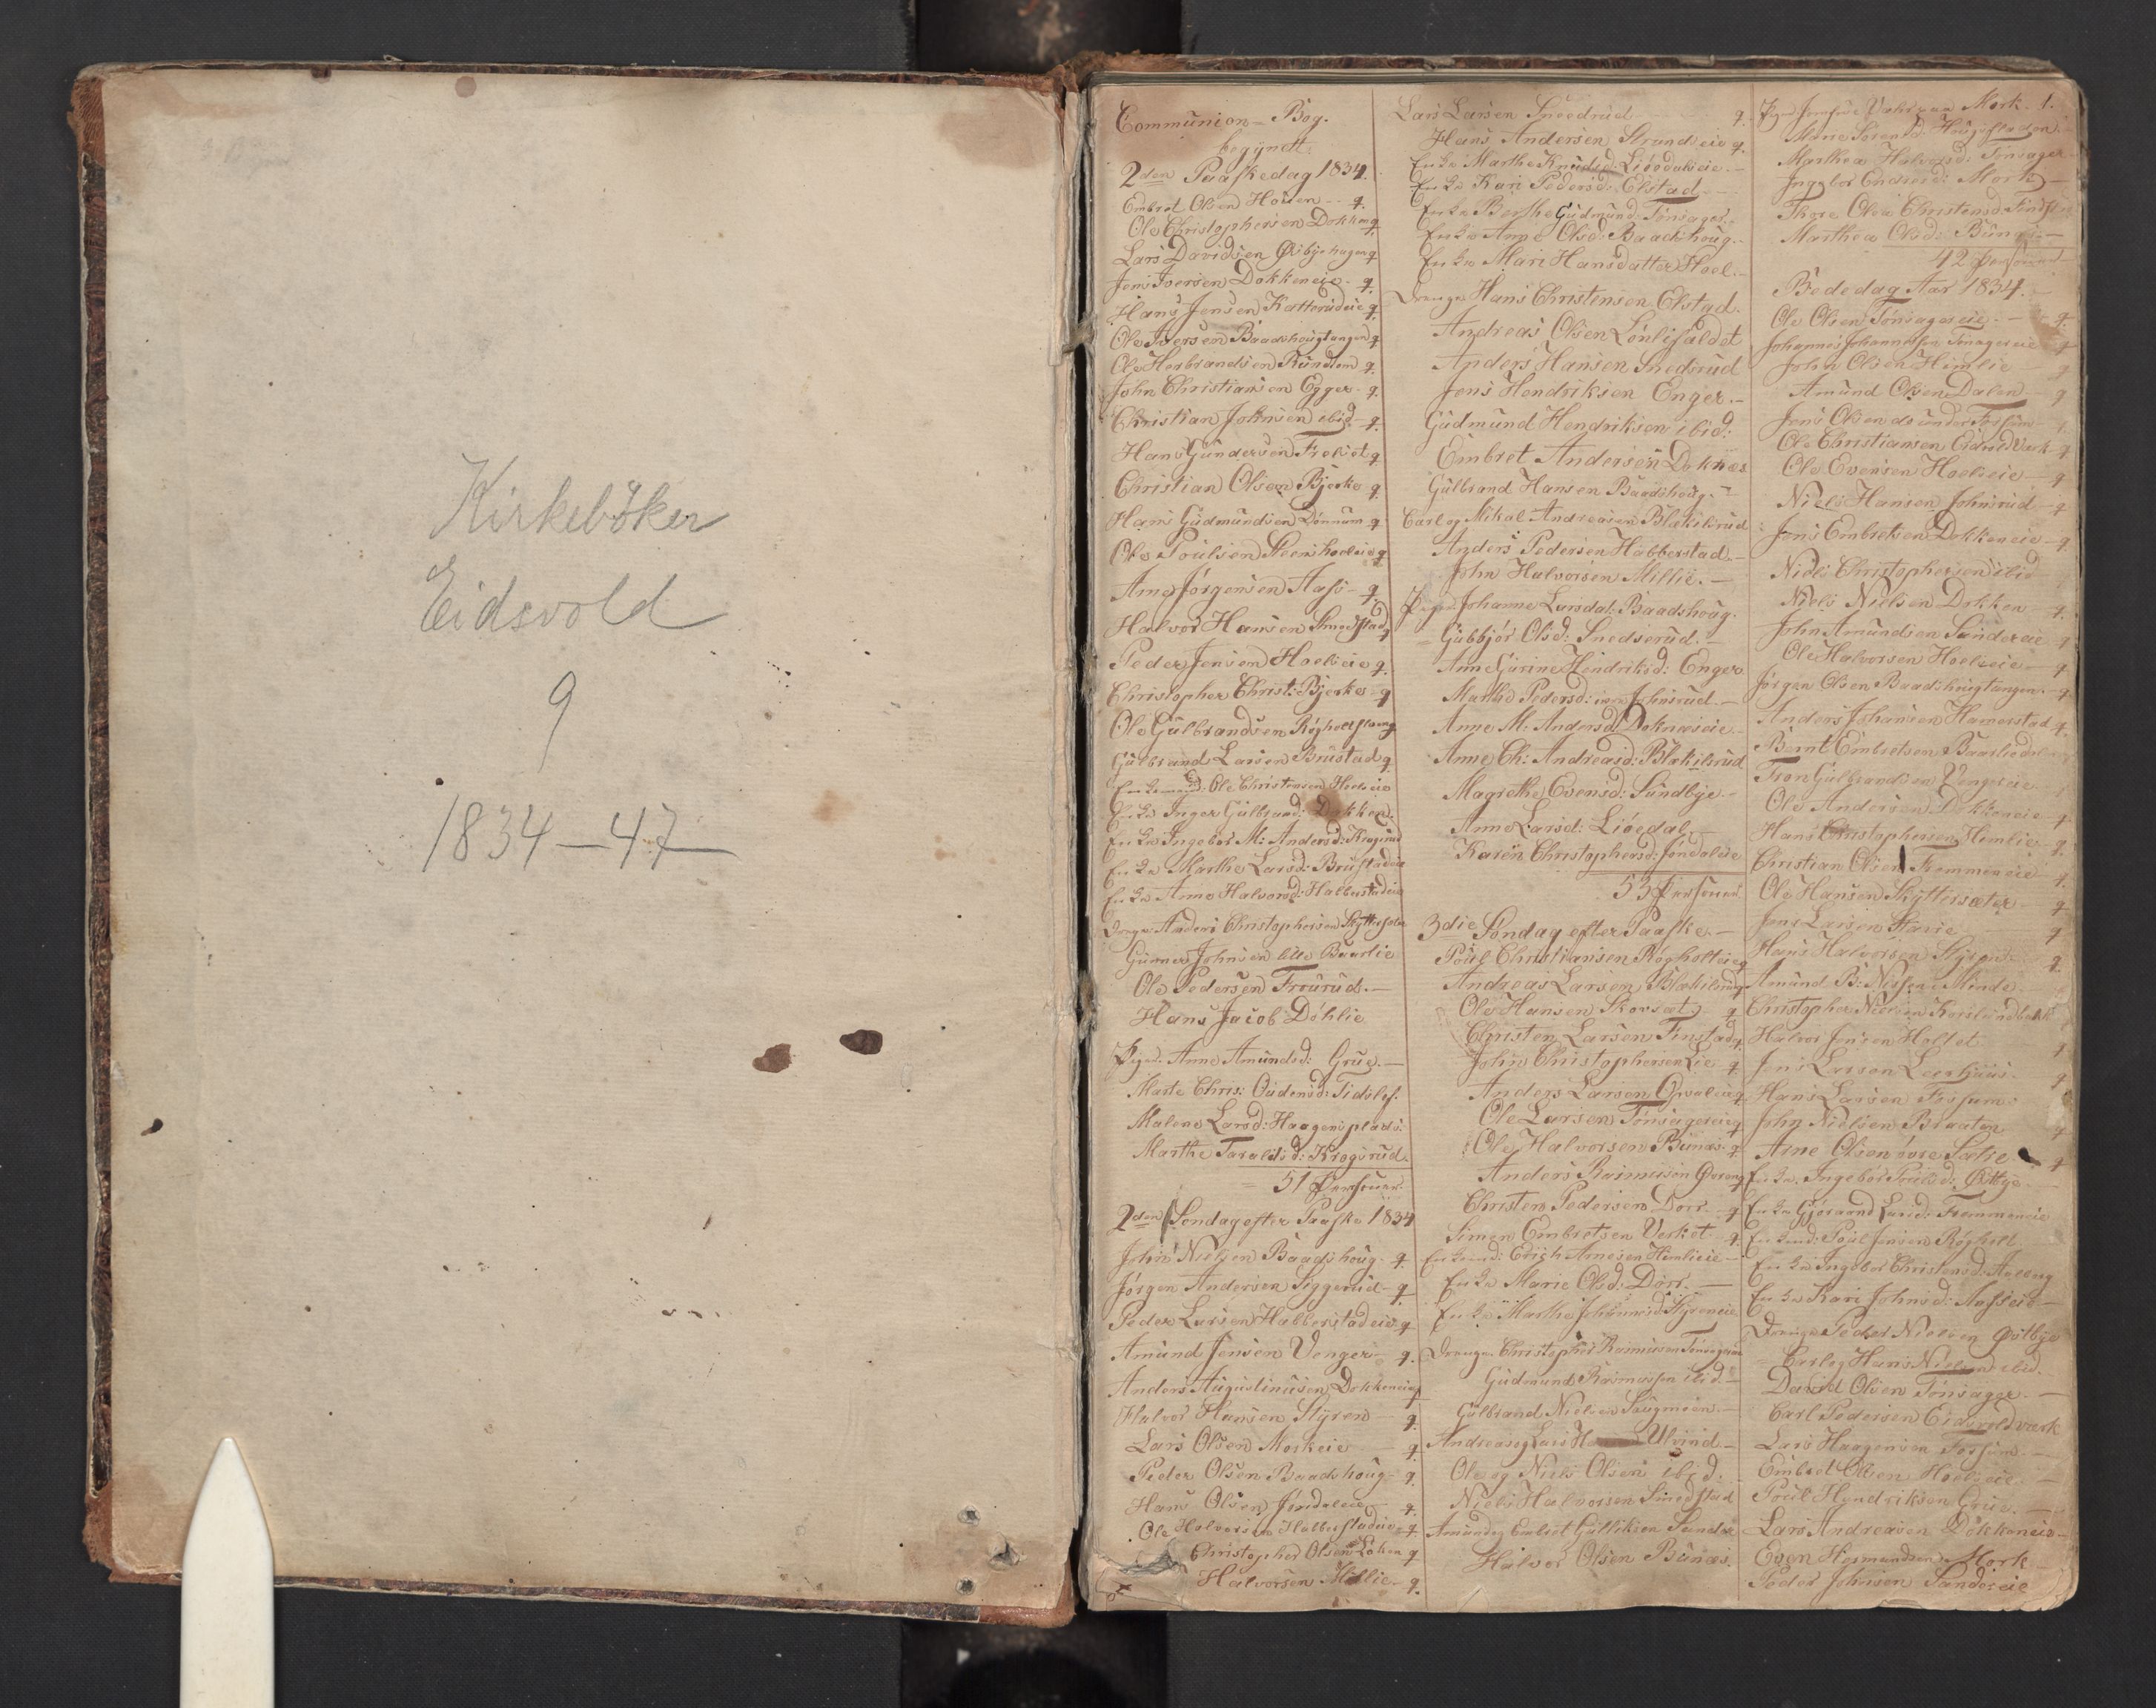 Kirkebøker
Eidsvold
9
1834–47
Communion-Bog.
begyndt
2den Paaskedag 1834.
Embret Olsen Houen q.
Ole Christophersen Dokken q
Lars Davidsen Østbyehagen q
Jens Iversen Dokkeneie q.
Hans Jensen Katterudeie q.
Ole Iversen Baadshougtangen q
Ole Herbrandsen q.
John Christiansen Egger q.
Christian Johnsen ibid q.
Hans Gundersen q
Christian Olsen Bjerke q
Hans Gudmundsen Dønnum q
Ole Poulsen q
Arne Jørgensen Aass q.
Halvor Hansen Smedstad
Peder Jensen Hoelseie q.
Christopher Christ: Bjerke q
Ole Gulbrandsen
Gulbrand Larsen Brustad q
Enkemand Ole Christensen Hoelseie
Enke Inger Gulbrand: Dokken
Enke Ingebor M: Andersd:
Enke Marthe Larsd: Brustadeie
Enke Anne Halvorsd: Habberstadeie
Drenge Anders Christophersen
Gunner Johnsen lille Baarlie
Ole Pedersen Frourud.
Hans Jacob Døhlie
Piger. Anne Amundsd: Grue.
Marte Chris: Oudensd:
Malene Larsd: Haagensplads.
Marthe Taraldsd: Krogsrud.
51 Personer.
2den Søndag efter Paaske 1834
John Nielsen Baadshoug q.
Jørgen Andersen Siggerud q
Peder Larsen Habberstadeie q
Amund Jensen Venger q.
Anders Augustinusen Dokkeneie q
Halvor Hansen Styren q.
Lars Olsen Morkeie q.
Peder Olsen Baadshoug q.
Hans Olsen Jøndaleie q.
Ole Halvorsen Habberstadeie q
Christopher Olsen Løken q
Halvorsen Millie q.
Lars Larsen Sneedsrud q.
Hans Andersen Strandeie q.
Enke Marthe Knudsd: Liøedalseie.
Enke Kari Pedersd: Elstad
Enke Berthe Gudmund: Tønsager.
Enke Anne Olsd: Baadshoug.
Enke Mari Hansdatter Hoel.
Drenge Hans Christensen Elstad.
Andreas Olsen Lønlifaldet
Anders Hansen Snedsrud
Jens Hendriksen Enger.
Gudmund Hendriksen ibid:
Embret Andersen Doknæs
Gulbrand Hansen Baadshoug.
Carl og Mikal Andreasen Blekilsrud
Anders Pedersen Habberstad.
John Halvorsen Millie.
Piger Johanne Larsdat: Baadshoug.
Gubbjør Olsd: Snedserud.
Anne Gurine Hendriksd: Enger
Marthe Pedersd: Johnsrud.
Anne M: Andersd: Doknæseie
Anne Ch: Andreasd: Blekilsrud
Magrethe Evensd: Sundbye.
Anne Larsd: Liøedal
Karen Christophersd: Jøndaleie
53 Personer
3die Søndag efter Paaske.
Poul Christiansen Røgholteie q
Andreas Larsen Blekilsrud q
Ole Hansen q
Christen Larsen Finstad q
John Christophersen Lie q
Anders Larsen Opsaleie q
Ole Larsen Tønsagereie q
Ole Halvorsen Bunæs q
Anders Rasmusen q
Christen Pedersen Dorr q
Simen Embretsen Verket q.
Enkemd: Erich Arnesen Himlieeie
Enke Marie Olsd: Dorr.
Enke Marthe Johannesd: Styreneie
Drenge Christopher Rasmusen Tønsager
Gudmund Rasmusen ibid.
Gulbrand Nielsen Saugmoen.
Andreas og Lars Ulvind
Ole og Niels Olsen ibid:
Niels Halvorsen Smedstad
Amund og Embret Gulliksen Sander
Halvor Olsen Bunæs.
Mork. 1.
Marthea Halvorsd: Tønsager
Ingebor Endresd: Mork
Marthea Olsd: Bunæs
42 Personer
Bededag Aar 1834.
Ole Olsen Tønsagereie q.
Johannes Johannessen Tønsagereie q
John Olsen Himlie q
Amund Olsen Dalen q
Ole Christiansen Eidsvoldverk q
Ole Evensen Hoelseie q
Niels Hansen Johnsrud q
Jens Embretsen Dokkeneie q.
Niels Christophersen ibid
Niels Nielsen Dokken q.
John Amundsen Sandereie q
Ole Halvorsen Hoelseie q
Jørgen Olsen Baadshougtangen. q
Anders Johansen Hammerstad q.
Bernt Embretsen
Tron Gulbrandsen Vengereie
Ole Andersen Dokkeneie q
Hans Christophersen Himlie q.
Christian Olsen Fremmeneie q.
Ole Hansen Skyttersæter q
Jens Larsen q
Hans Halvorsen Styren q.
Amund B: Nissen Minde.
Christopher Nielsen
Halvor Jensen Holtet q
Jens Larsen Leerhuus. q
Hans Larsen Fossum.
John Nielsen Braaten q
Arne Olsen øvre Sake q
Enke. Ingebor Poulsd: Østbye.
Enke Gjørand Larsd: Fremmeneie
Enkemd: Poul Jensen Røgholt
Enke Ingebor Christensd:
Enke Kari Johnsd: Aasseie
Drenge Peder Nielsen Østbye
Carl og Hans Nielsen ibid.
David Olsen Tønsager.
Carl Pedersen Eidsvoldværk
Lars Haagensen Fossum.
Embret Olsen Hoelseie.
Poul Hendriksen Grue.
Lars Andreasen Dokkeneie
Even Hermundsen Mork
Peder Johnsen Sandereie